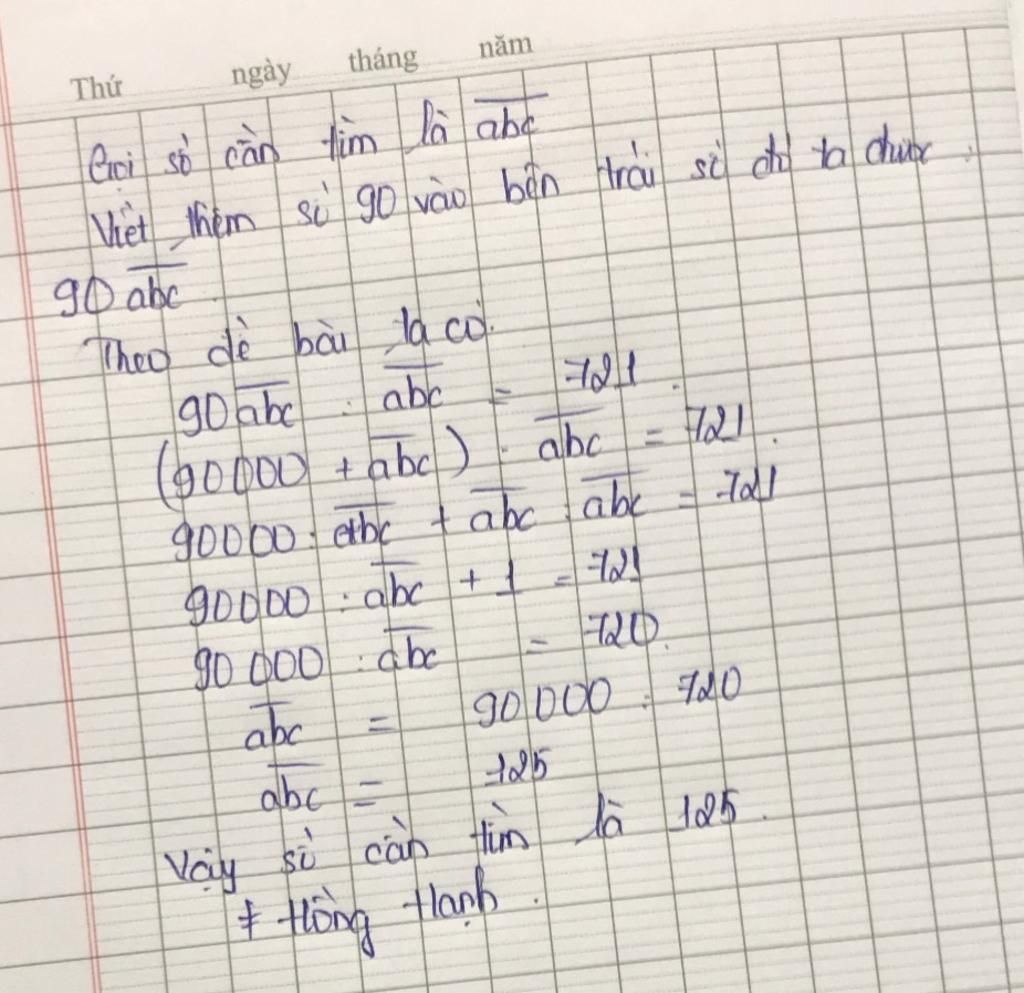 Thứ ngày tháng năm
Gọi số cần tìm là abc
Viết thêm số 90 vào bên trái số đó ta được
90abc
Theo đề bài ta có
90abc : abc = 721
(90000 + abc) : abc = 721
90000 : abc + abc : abc = 721
90000 : abc + 1 = 721
90000 : abc = 720
abc = 90000 : 720
abc = 125
Vậy số cần tìm là 125.
Hồng Hạnh.